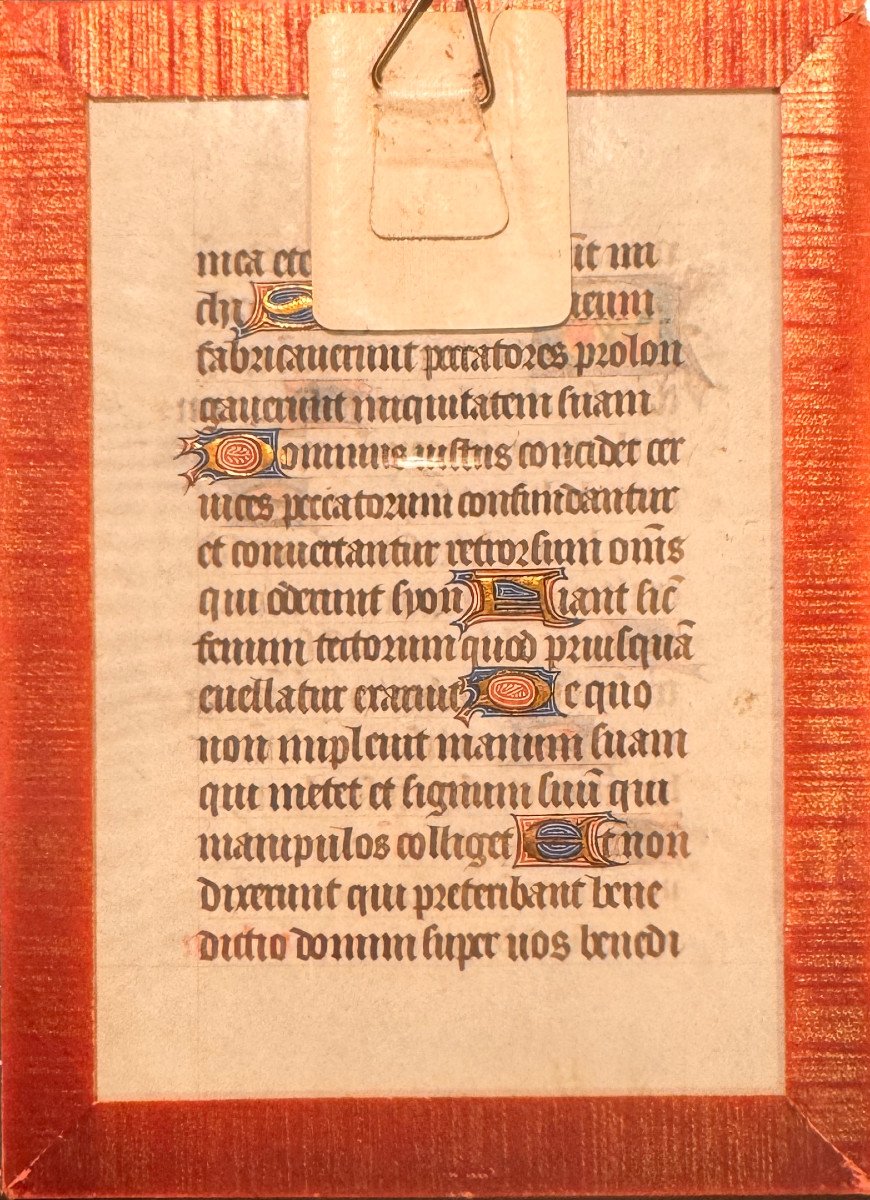 mea ete īt mi
chi S meum
fabricauerunt peccatores prolon
gauerunt iniquitatem suam
Dominus iustus concidet cer
uices peccatorum confundantur
et conuertantur retrorsum om̄s
qui oderunt syon Fiant sic̄
fenum tectorum quod priusquā
euellatur exaruit De quo
non impleuit manum suam
qui metet et signum suū qui
manipulos colliget Et non
dixerunt qui preteribant bene
dictio domini super uos benedi